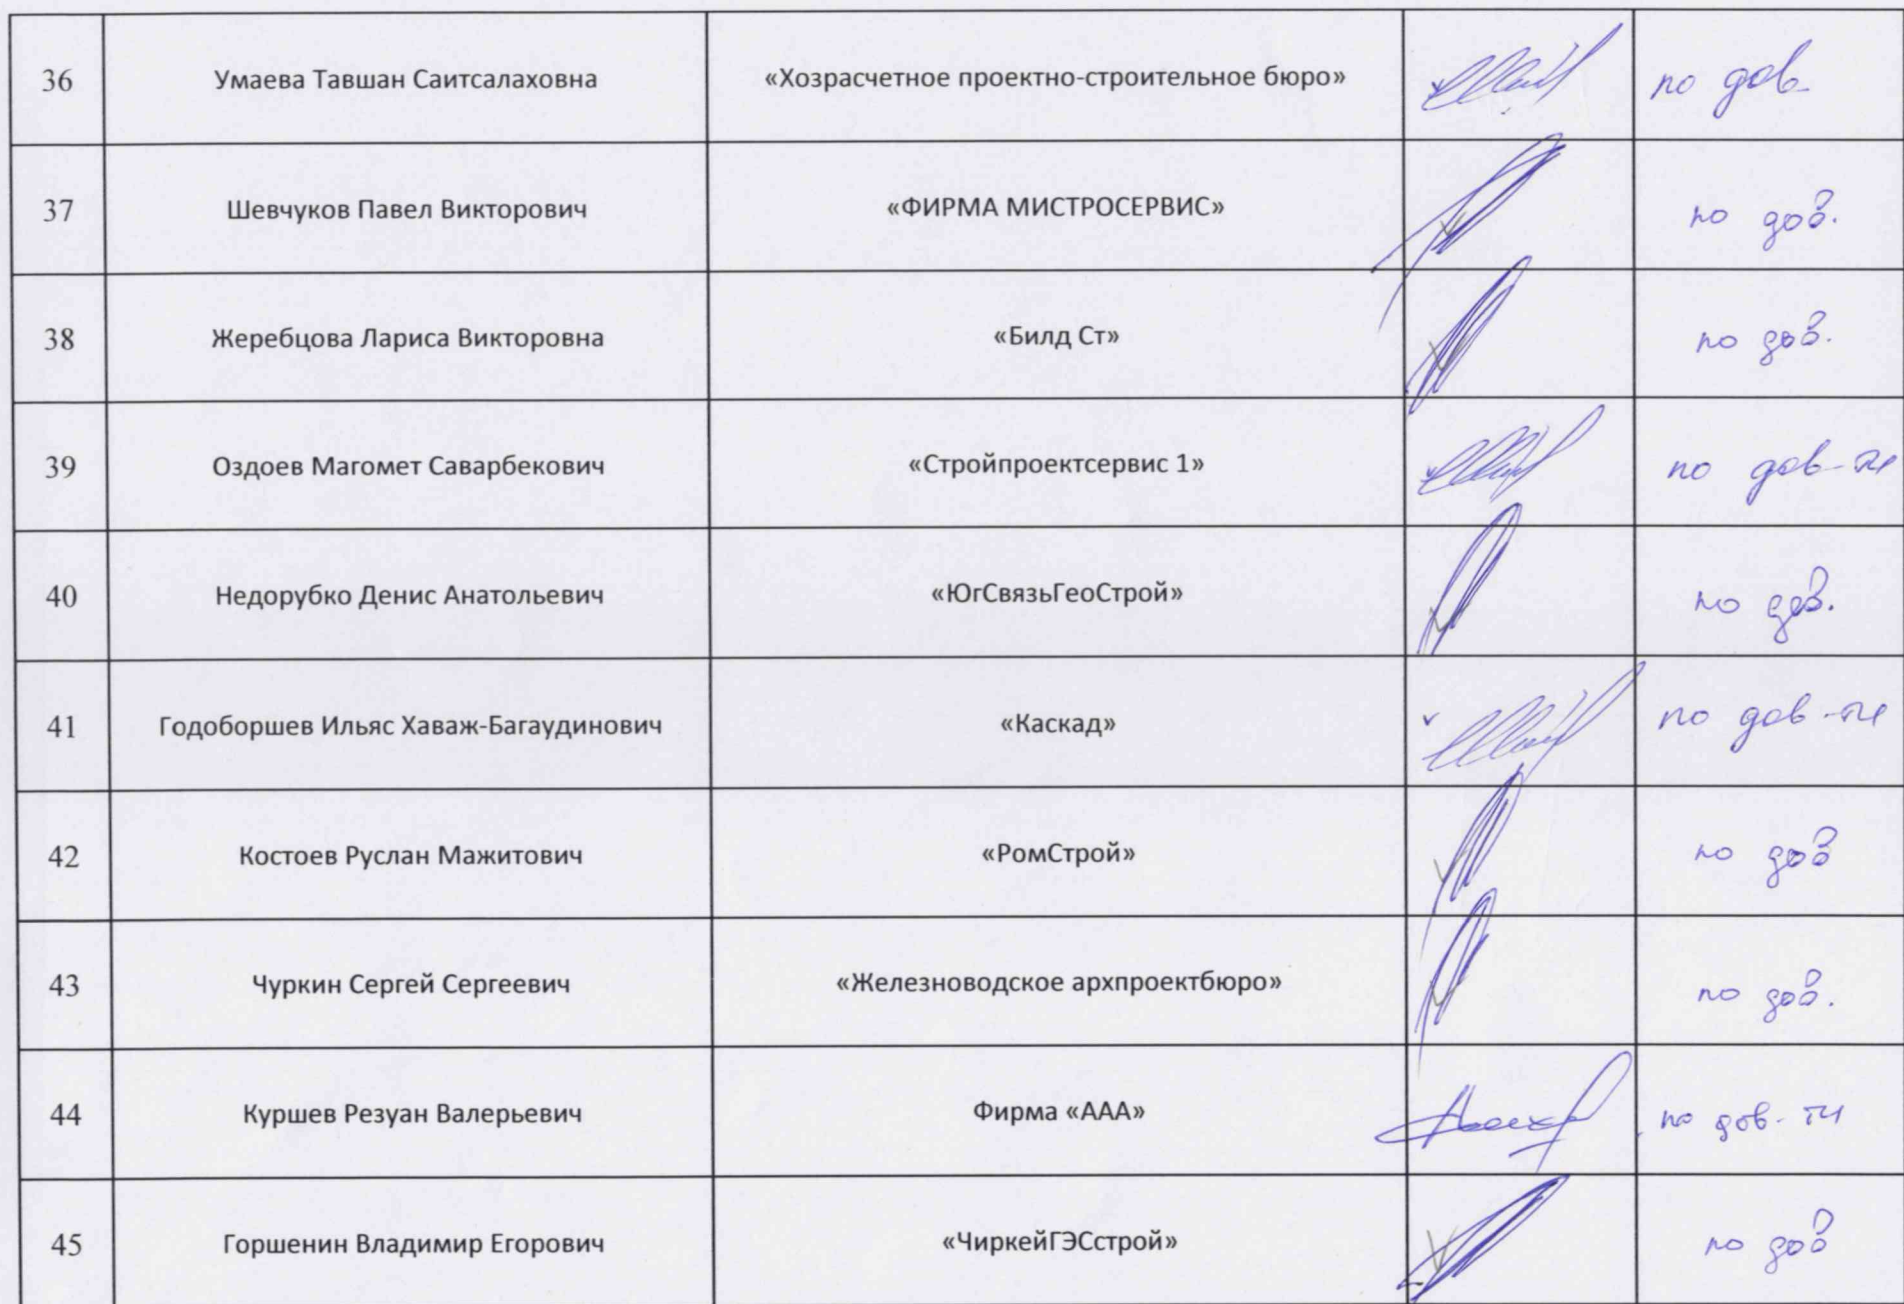 36 Умаева Тавшан Саитсалаховна «Хозрасчетное проектно-строительное бюро» по дов.
37 Шевчуков Павел Викторович «ФИРМА МИСТРОСЕРВИС» по дов.
38 Жеребцова Лариса Викторовна «Билд Ст» по дов.
39 Оздоев Магомет Саварбекович «Стройпроектсервис 1» по дов-ти
40 Недорубко Денис Анатольевич «ЮгСвязьГеоСтрой» по дов.
41 Годоборшев Ильяс Хаваж-Багаудинович «Каскад» по дов-ти
42 Костоев Руслан Мажитович «РомСтрой» по дов
43 Чуркин Сергей Сергеевич «Железноводское архпроектбюро» по дов.
44 Куршев Резуан Валерьевич Фирма «ААА» по дов-ти
45 Горшенин Владимир Егорович «ЧиркейГЭСстрой» по дов